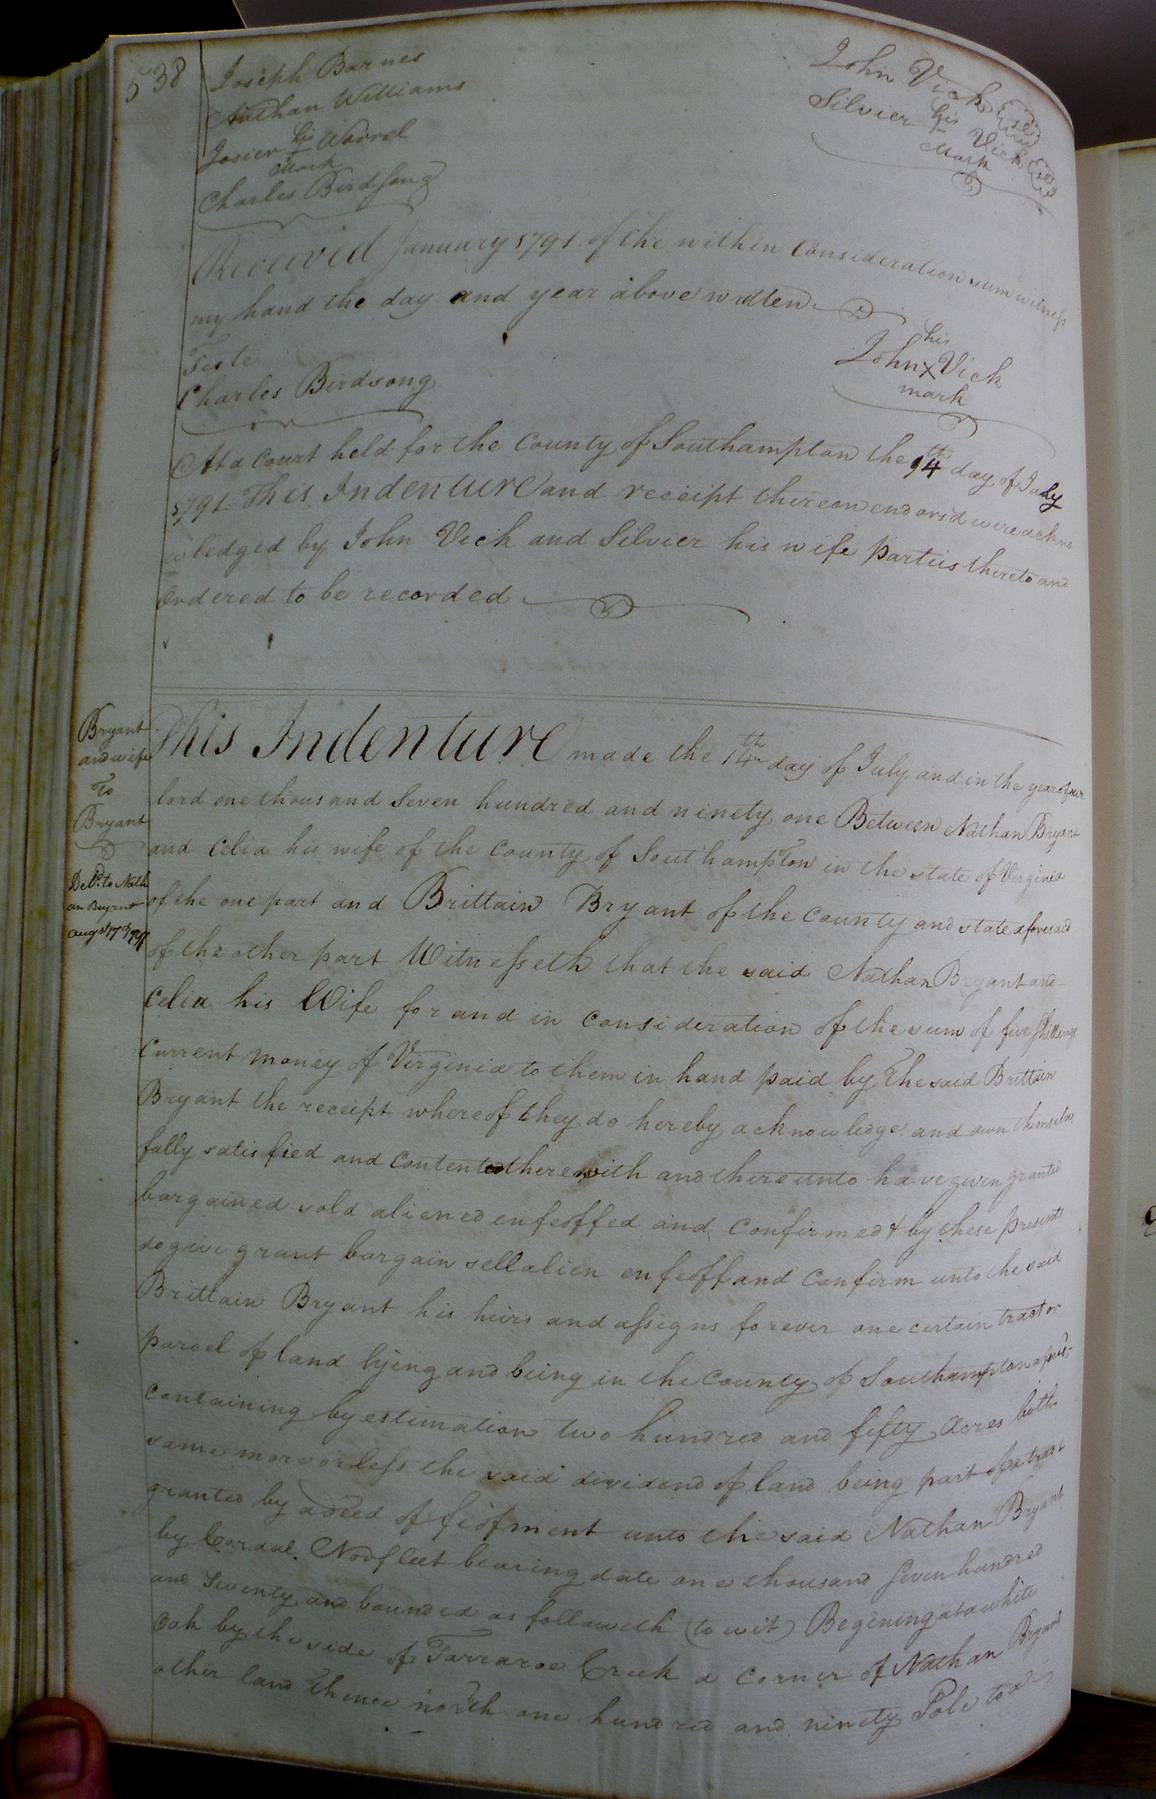 538
Joseph Barnes
Nathan Williams
Josier his Mark Worrel
Charles Birdsong
John Vick
Silvier his Mark Vick
Received January 1791 of the within consideration sum witness
my hand the day and year above written
Teste
Charles Birdsong
his
John X Vick
mark
At a Court held for the County of Southampton the 14th day of July
1791 This Indenture and receipt thereon endorsd were ackno
wledged by John Vick and Silvier his wife parties thereto and
Ordered to be recorded
Bryant
and wife
To
Bryant
Deld. to Nath
an Bryant
This Indenture made the 14th day of July and in the year of our
lord one thousand Seven hundred and ninety one Between Nathan Bryant
and Celia his wife of the County of Southampton in the state of Virginia
of the one part and Brittain Bryant of the County and state aforesaid
of the other part Witnesseth that the said Nathan Bryant and
Celia his Wife for and in consideration of the sum of five Shillings
Current money of Virginia to them in hand paid by The said Brittain
Bryant the receipt whereof they do hereby acknowledge and own themselves
fully satisfied and Contented therewith and thereunto have given granted
bargained sold aliened enfeoffed and Confirmed & by these presents
do give grant bargain sell alien enfeoff and Confirm unto the said
Brittain Bryant his heirs and assigns forever one certain tract or
parcel of land lying and being in the County of Southampton
containing by estimation two hundred and fifty Acres be the
same more or less the said dividend of land being part of a tract
granted by a deed of feofment unto the said Nathan Bryant
by Cordal Norfleet bearing date one thousand Seven hundred
and Seventy and bounded as followeth (to wit) Begening at a white
Oak by the side of Tarrarae Creek a corner of Nathan Bryant
other land Thence north one hundred and ninety Pole to a